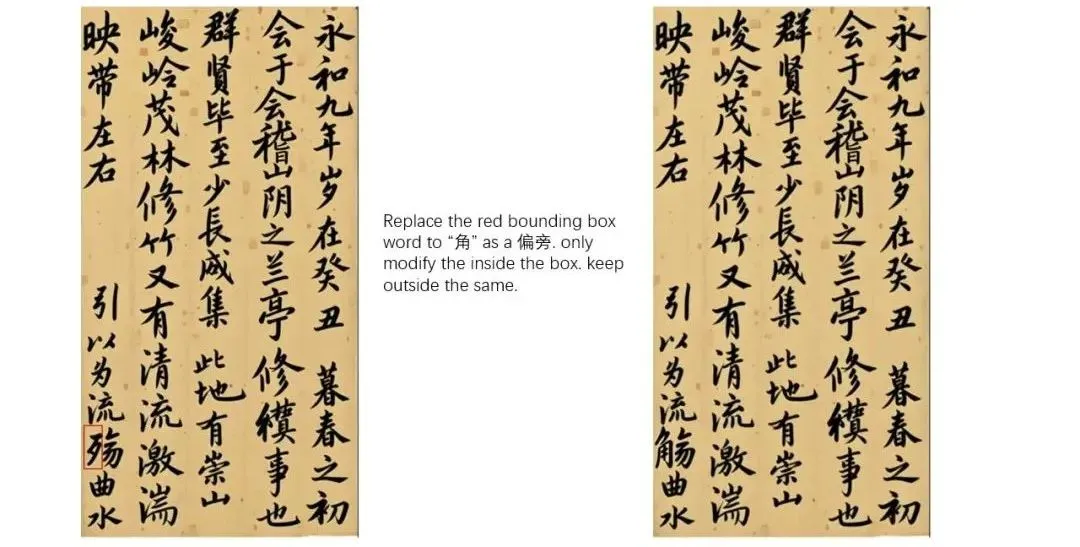 永和九年岁在癸丑 暮春之初
会于会稽山阴之兰亭 修事也
群賢毕至少長咸集 此地有崇山
峻岭茂林修竹又有清流激湍
映带左右 引以为流殇曲水
Replace the red bounding box
word to “角” as a 偏旁. only
modify the inside the box. keep
outside the same.
永和九年岁在癸丑 暮春之初
会于会稽山阴之兰亭 修事也
群賢毕至少長咸集 此地有崇山
峻岭茂林修竹又有清流激湍
映带左右 引以为流觞曲水